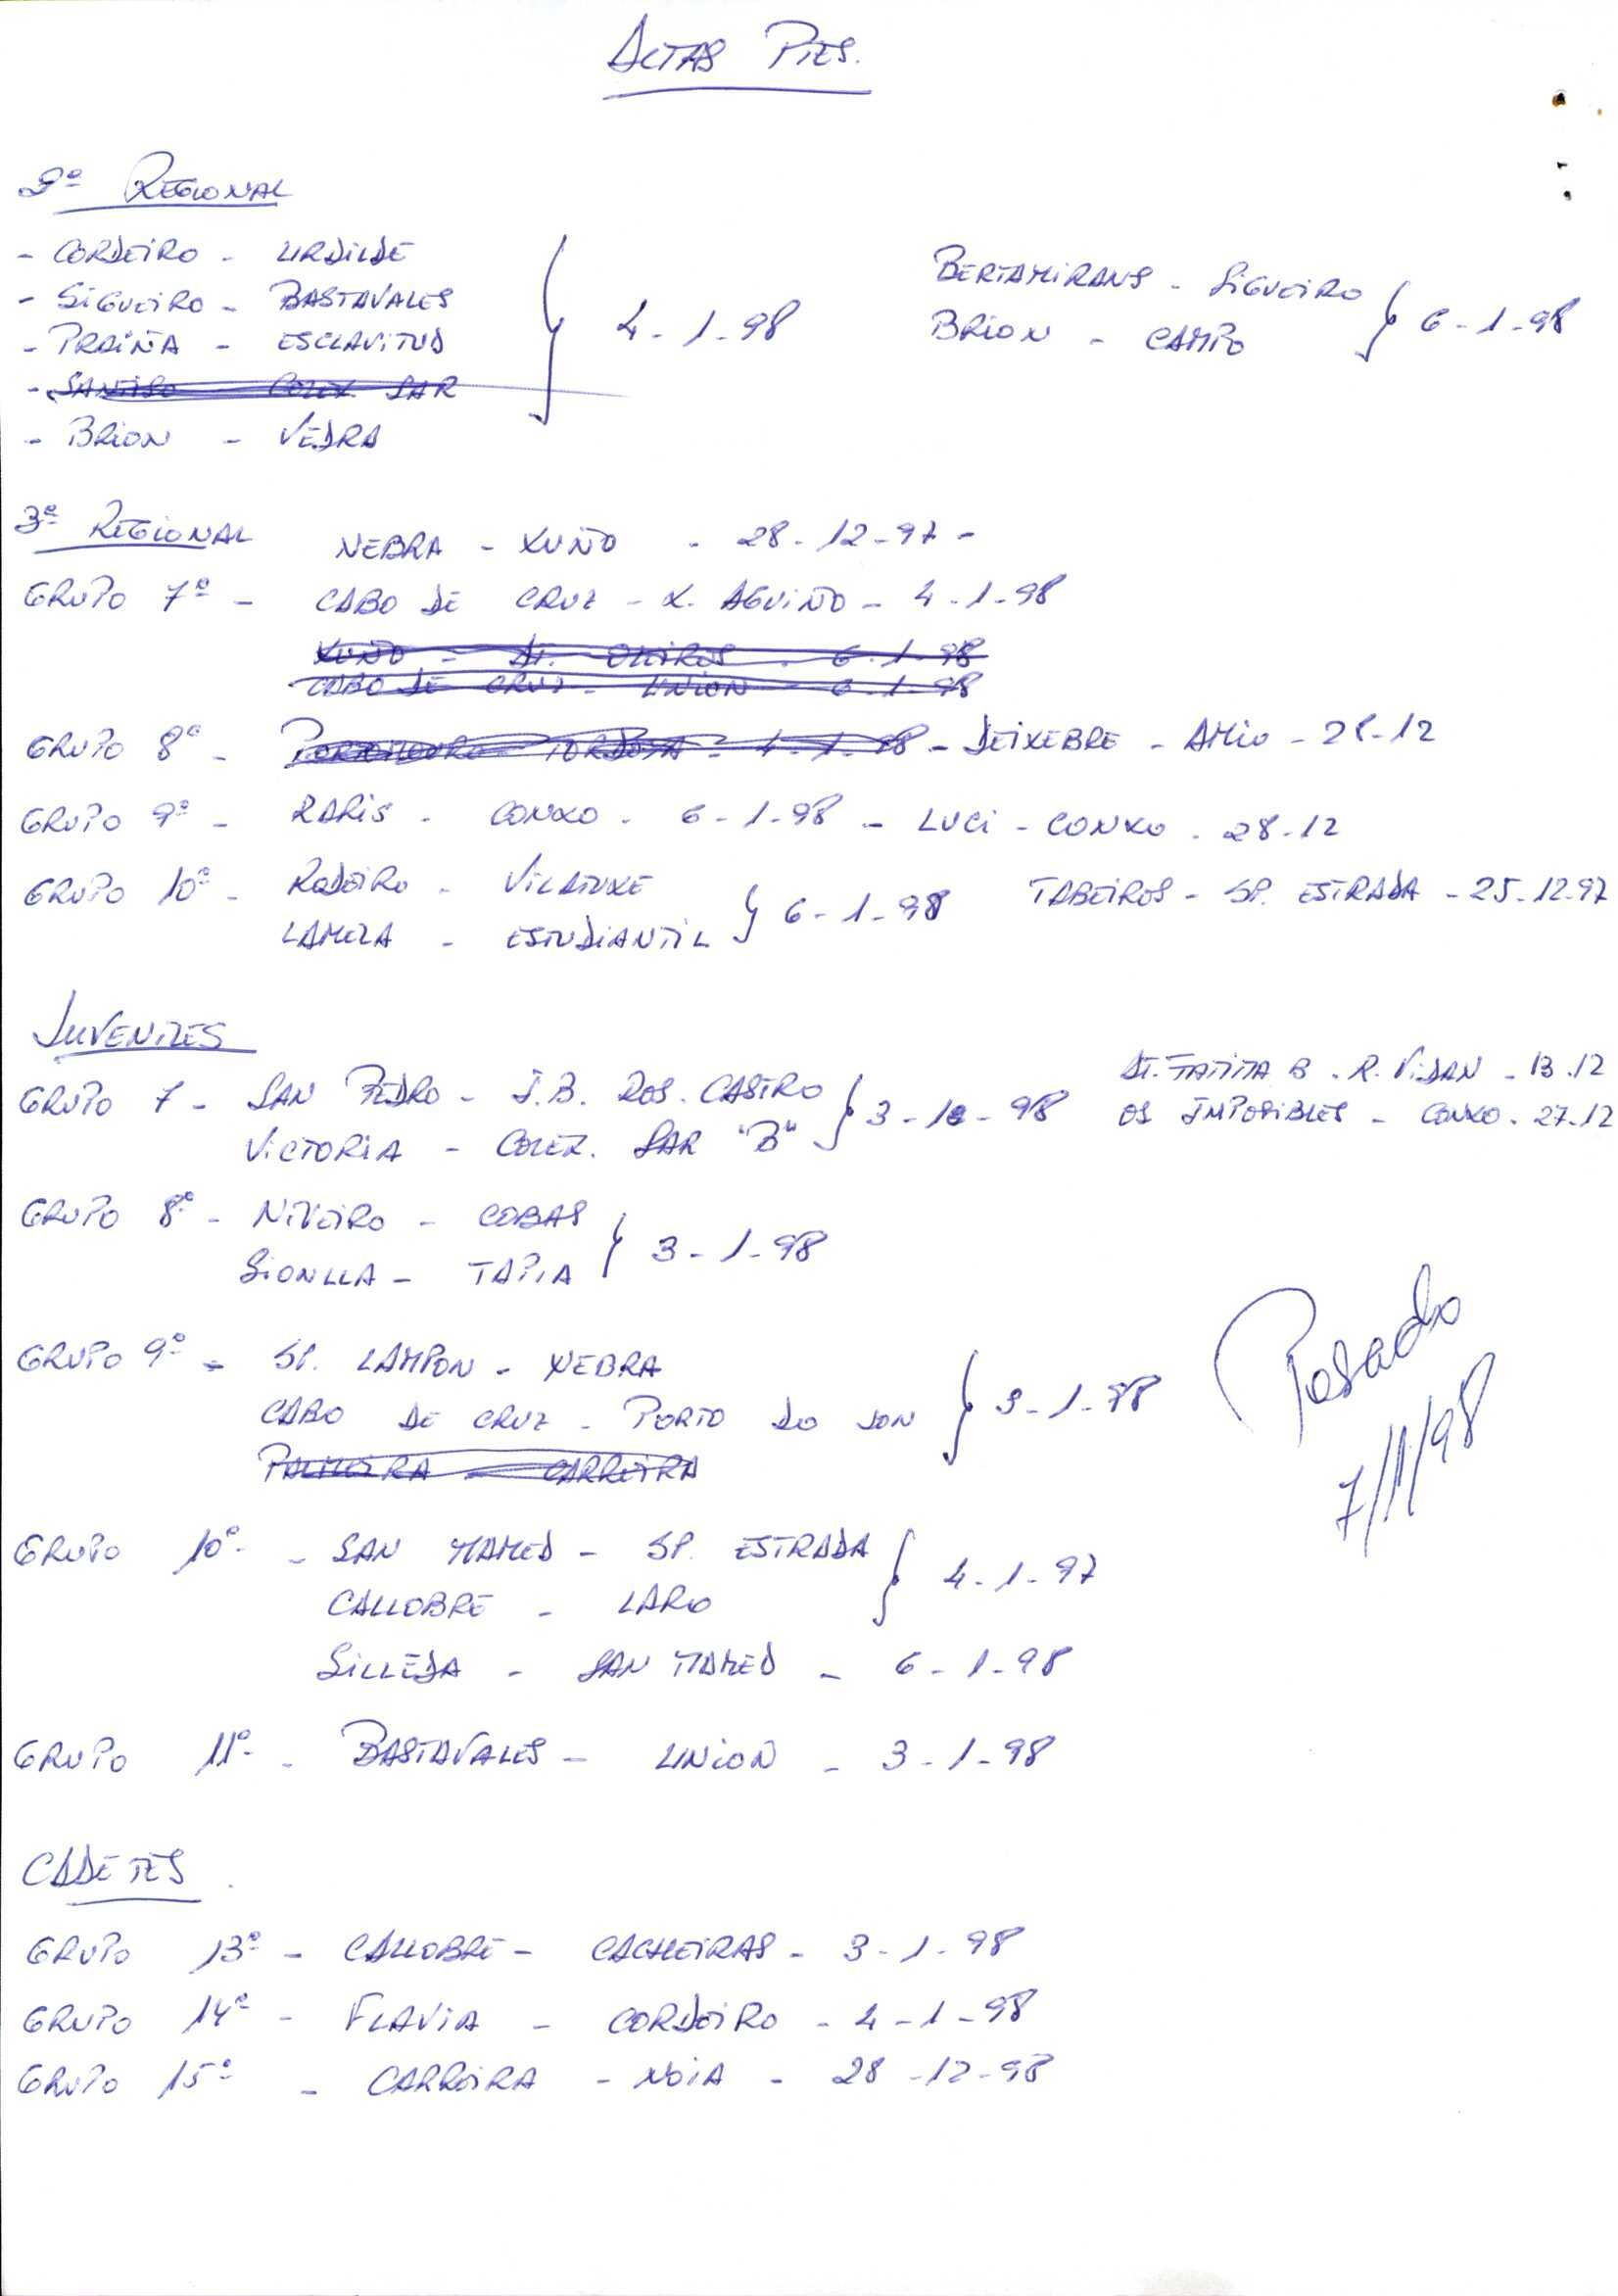 ACTAS PTES.
2ª REGIONAL
- CORDEIRO - URDILDE
- SIGUEIRO - BASTAVALES
- PRAIÑA - ESCLAVITUD
- SANTISO COLEX. SAR
- BRION - VEDRA
4-1-98
BERTAMIRANS - SIGUEIRO
BRION - CAMPO
6-1-98
3ª REGIONAL NEBRA - XUÑO - 28-12-97 -
GRUPO 7º - CABO DE CRUZ - X. AGUIÑO - 4-1-98
XUÑO - AT. OLEIROS - 6-1-98
CABO DE CRUZ - UNION - 6-1-98
GRUPO 8º - PORTOMOURO TORDOYA - 4-1-98 - DEIXEBRE - AMIO - 28-12
GRUPO 9º - RARIS - CONXO - 6-1-98 - LUCI - CONXO - 28-12
GRUPO 10º - RODEIRO - VILATUXE
LAMELA - ESTUDIANTIL
6-1-98
TABEIROS - SP. ESTRADA - 25-12-97
JUVENILES
GRUPO 7 - SAN PEDRO - I.B. ROS. CASTRO
VICTORIA - COLEX. SAR "B"
3-1-98
AT. FATIMA B - R. VIDAN - 13-12
OS IMPOSIBLES - CONXO - 27-12
GRUPO 8º - NIVEIRO - COBAS
SIONLLA - TAPIA
3-1-98
GRUPO 9º - SP. LAMPON - NEBRA
CABO DE CRUZ - PORTO DO SON
PALMEIRA - CARREIRA
3-1-98
Pasado
7/1/98
GRUPO 10º - SAN MAMED - SP. ESTRADA
CALLOBRE - LARO
4-1-97
SILLEDA - SAN MAMED - 6-1-98
GRUPO 11º - BASTAVALES - UNION - 3-1-98
CADETES
GRUPO 13º - CALLOBRE - CACHEIRAS - 3-1-98
GRUPO 14º - FLAVIA - CORDEIRO - 4-1-98
GRUPO 15º - CARREIRA - NOIA - 28-12-98